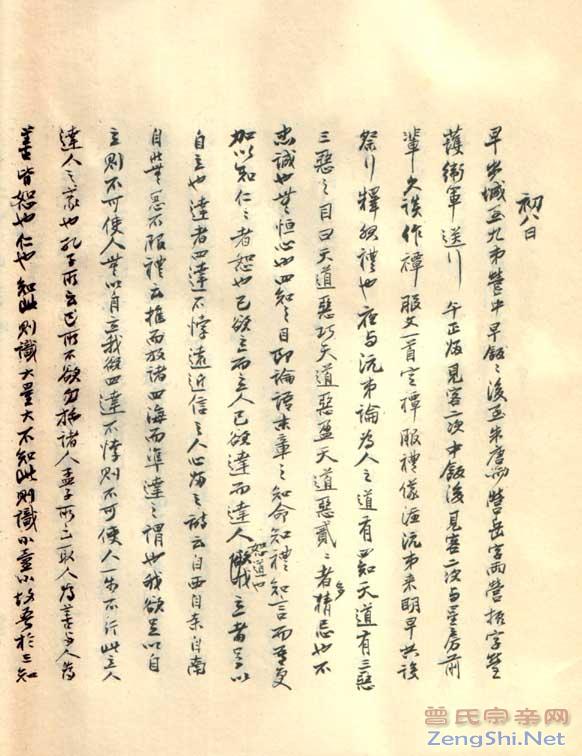 初八日
早出城至九弟營中早飯々後至朱唐洲營岳字兩營振字營
護衛軍送行午正歸見客二次中飯後見客二次与星房前
輩久談作禫服文一首定禫服禮儀澄沅弟來明早共設
祭行釋服禮也夜与沅弟論為人之道有四知天道有三惡
三惡之目曰天道惡巧天道惡盈天道惡貳々者多猜忌也不
忠誠也無恒心也四知之目即論語末章之知命知禮知言而吾更
加以知仁々者恕也己欲立而立人己欲達而達人恕道也立者足以
自立也達者四達不悖遠近信之人心歸之詩云自西自東自南
自北無思不服禮云推而放諸四海而準達之謂也我欲足以自
立則不可使人無以自立我欲四達不悖則不可使人一步不行此立人
達人之義也孔子所云己所不欲勿施諸人孟子所云取人為善与人為
善皆恕也仁也知此則識大量大不知此則識小量小故吾於三知
曾氏宗亲网
ZengShi.Net